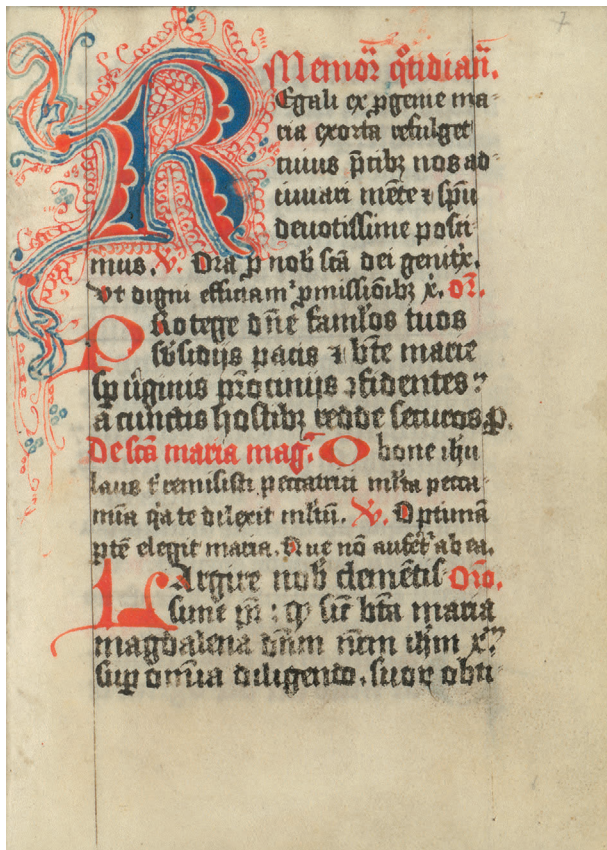 7
Memor̄ q̄tidian̄.
R Egali ex ꝓgenie ma-
ria exorta refulget
cuius p̄cibꝫ nos ad-
iuuari mēte ⁊ sp̄u
deuotissime posci
mus. V̷. Ora ꝓ nob̄ sc̄a dei genit͛x.
Vt digni efficiam᷒ ꝓmissiōibꝫ x̄. Or̄.
Protege dn̄e famłos tuos
sb̄sidijs pacis ⁊ bt̄e marie
sꝑ v̄ginis pr̄ocinijs ꝯfidentes:
a cunctis hostibꝫ redde securos. ꝑ.
De sc̄a maria maḡ. O bone ih̄u
laus t̄ remisisti peccatrici mł̄ta pecca-
mīa q̄a te dilexit mł̄tū. V̷. Optimā
ptē elegit maria. Que nō aufer͛ ab ea.
Largire nob̄ clemētis Or̄o.
sime pr̄: ꝙ sic̄ bt̄a maria
magdalena dn̄m nr̄m ih̄m x̄m
suꝑ om̄ia diligendo, suoꝝ obti-